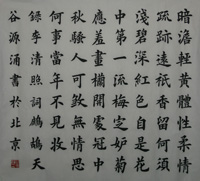 暗澹輕黃體性柔情
疏跡遠祇香留何須
淺碧深紅色自是花
中第一流梅定妒菊
應羞畫欄開處冠中
秋騷人可煞無情思
何事當年不見收
錄李清照詞鷓鴣天
谷源涌書於北京